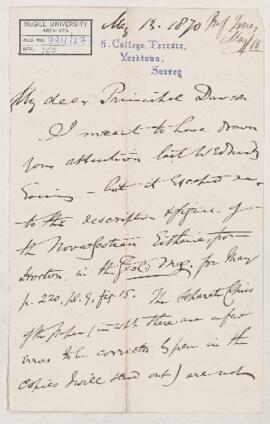 McGILL UNIVERSITY
ARCHIVES
ACC. NO. 2211/27
REF. 160
May 13. 1870
Prof Jones
May 13
5, College Terrace,
Yorktown,
Surrey
My dear Principal Dawson
I meant to have drawn
your attention last Wednesday
Evening – but it escaped me –
to the description & figure of
the Nova Scotian Estheria from
Horton, in the Geol. Mag. for May
p. 220, pl. 9, fig. 15. The separate Copies
of the paper (in wch there are a few
errors to be corrected by pen in the
copies I will send out) are not